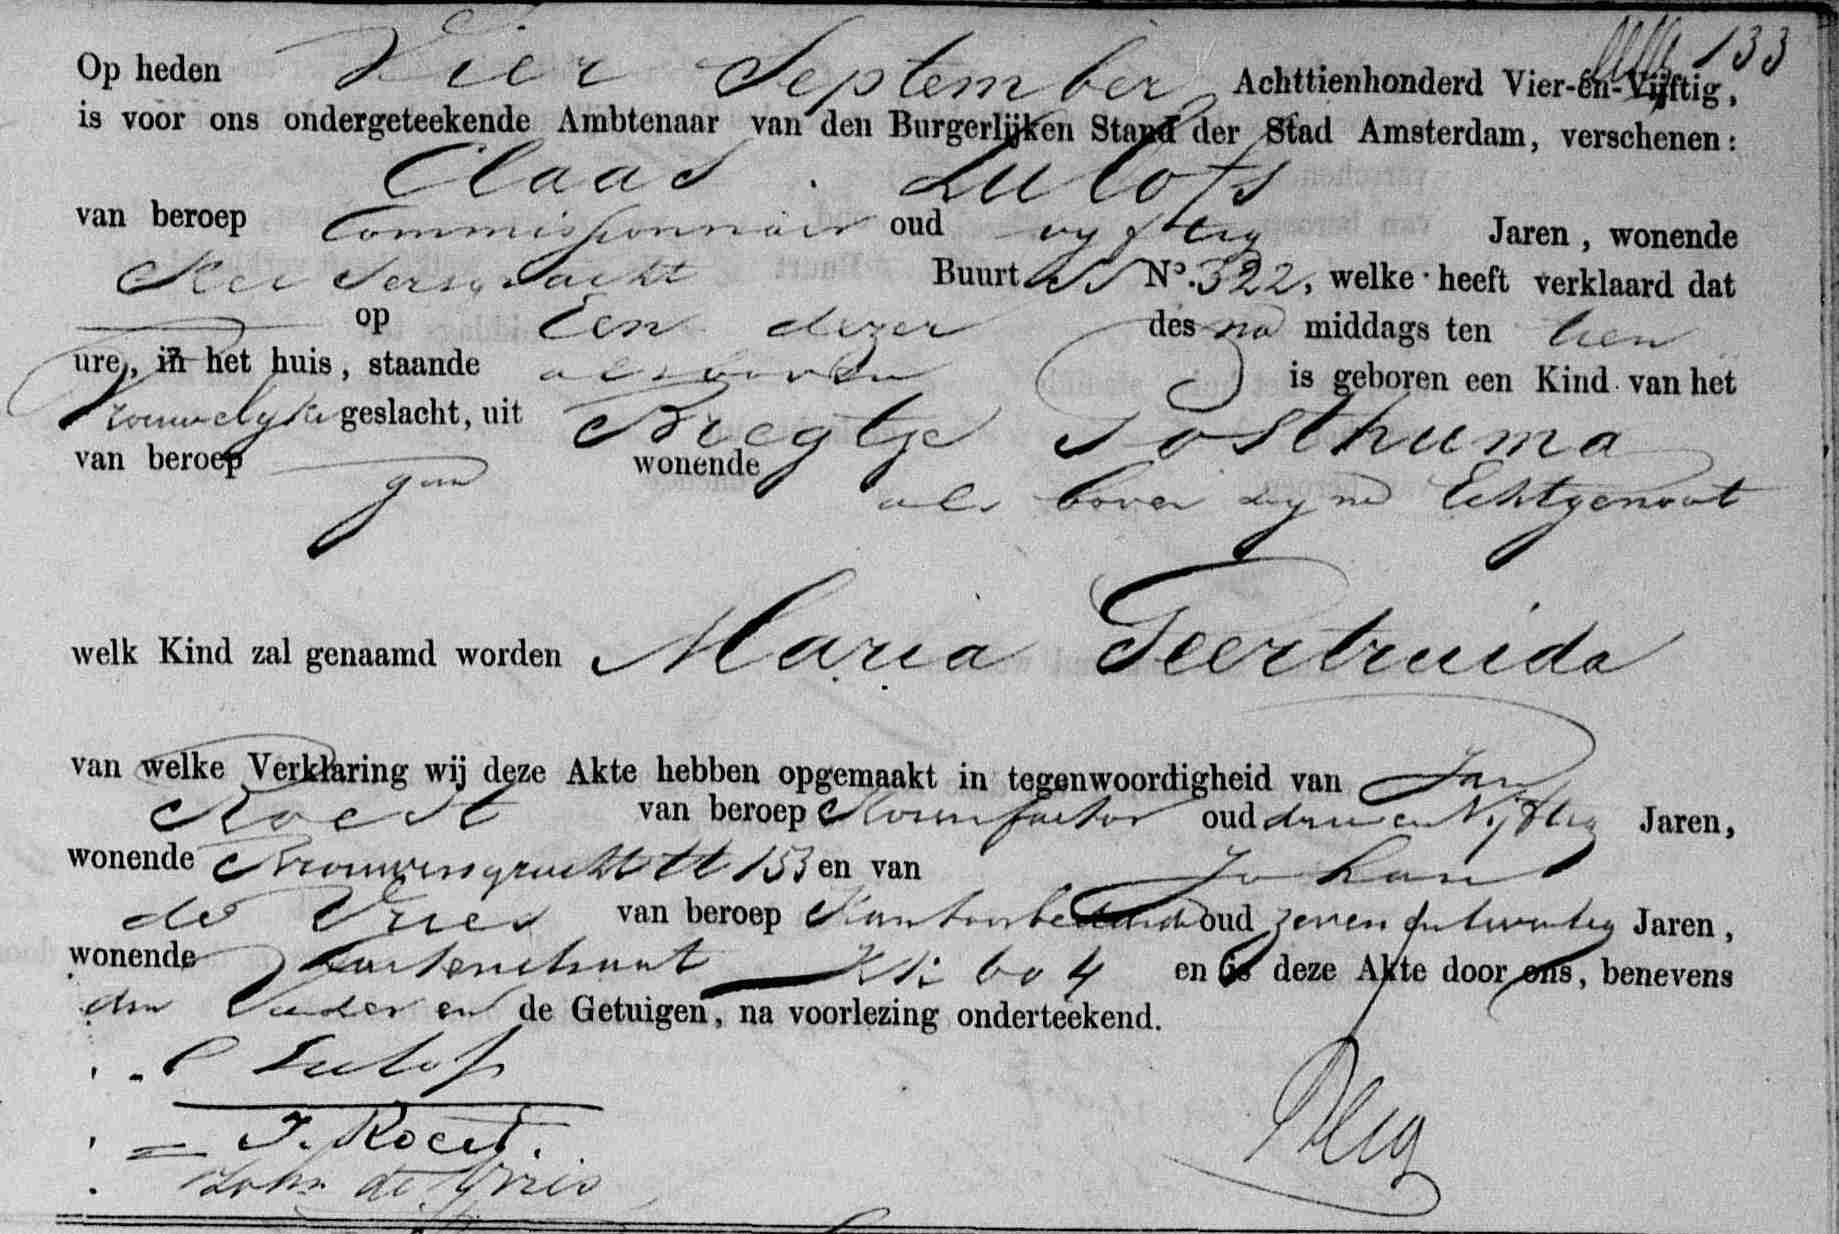 133
Op heden Vier September Achttienhonderd Vier-en-Vijftig,
is voor ons ondergeteekende Ambtenaar van den Burgerlijken Stand der Stad Amsterdam, verschenen:
Claas Lulofs
van beroep Commissionnair oud vyftig Jaren, wonende
Keisersgracht Buurt No. 322, welke heeft verklaard dat
op Een dezer des na middags ten tien
ure, in het huis, staande als boven is geboren een Kind van het
Vrouwelyke geslacht, uit Bregtje Posthuma
van beroep geen wonende als boven zyne Echtgenoot
welk Kind zal genaamd worden Maria Geertruida
van welke Verklaring wij deze Akte hebben opgemaakt in tegenwoordigheid van Jan
Roest van beroep Korenfactor oud drie en Vyftig Jaren,
wonende Brouwersgracht tt 153 en van Johan
de Vries van beroep Kantoorbediende oud zeven en twintig Jaren,
wonende KK 604 en is deze Akte door ons, benevens
den Vader en de Getuigen, na voorlezing onderteekend.
C Lulofs
J. Roest.
Joh. de Vries